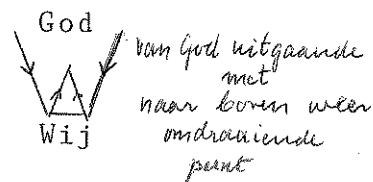 God
van God uitgaande
met
naar boven weer
omdraaiende
punt
Wij